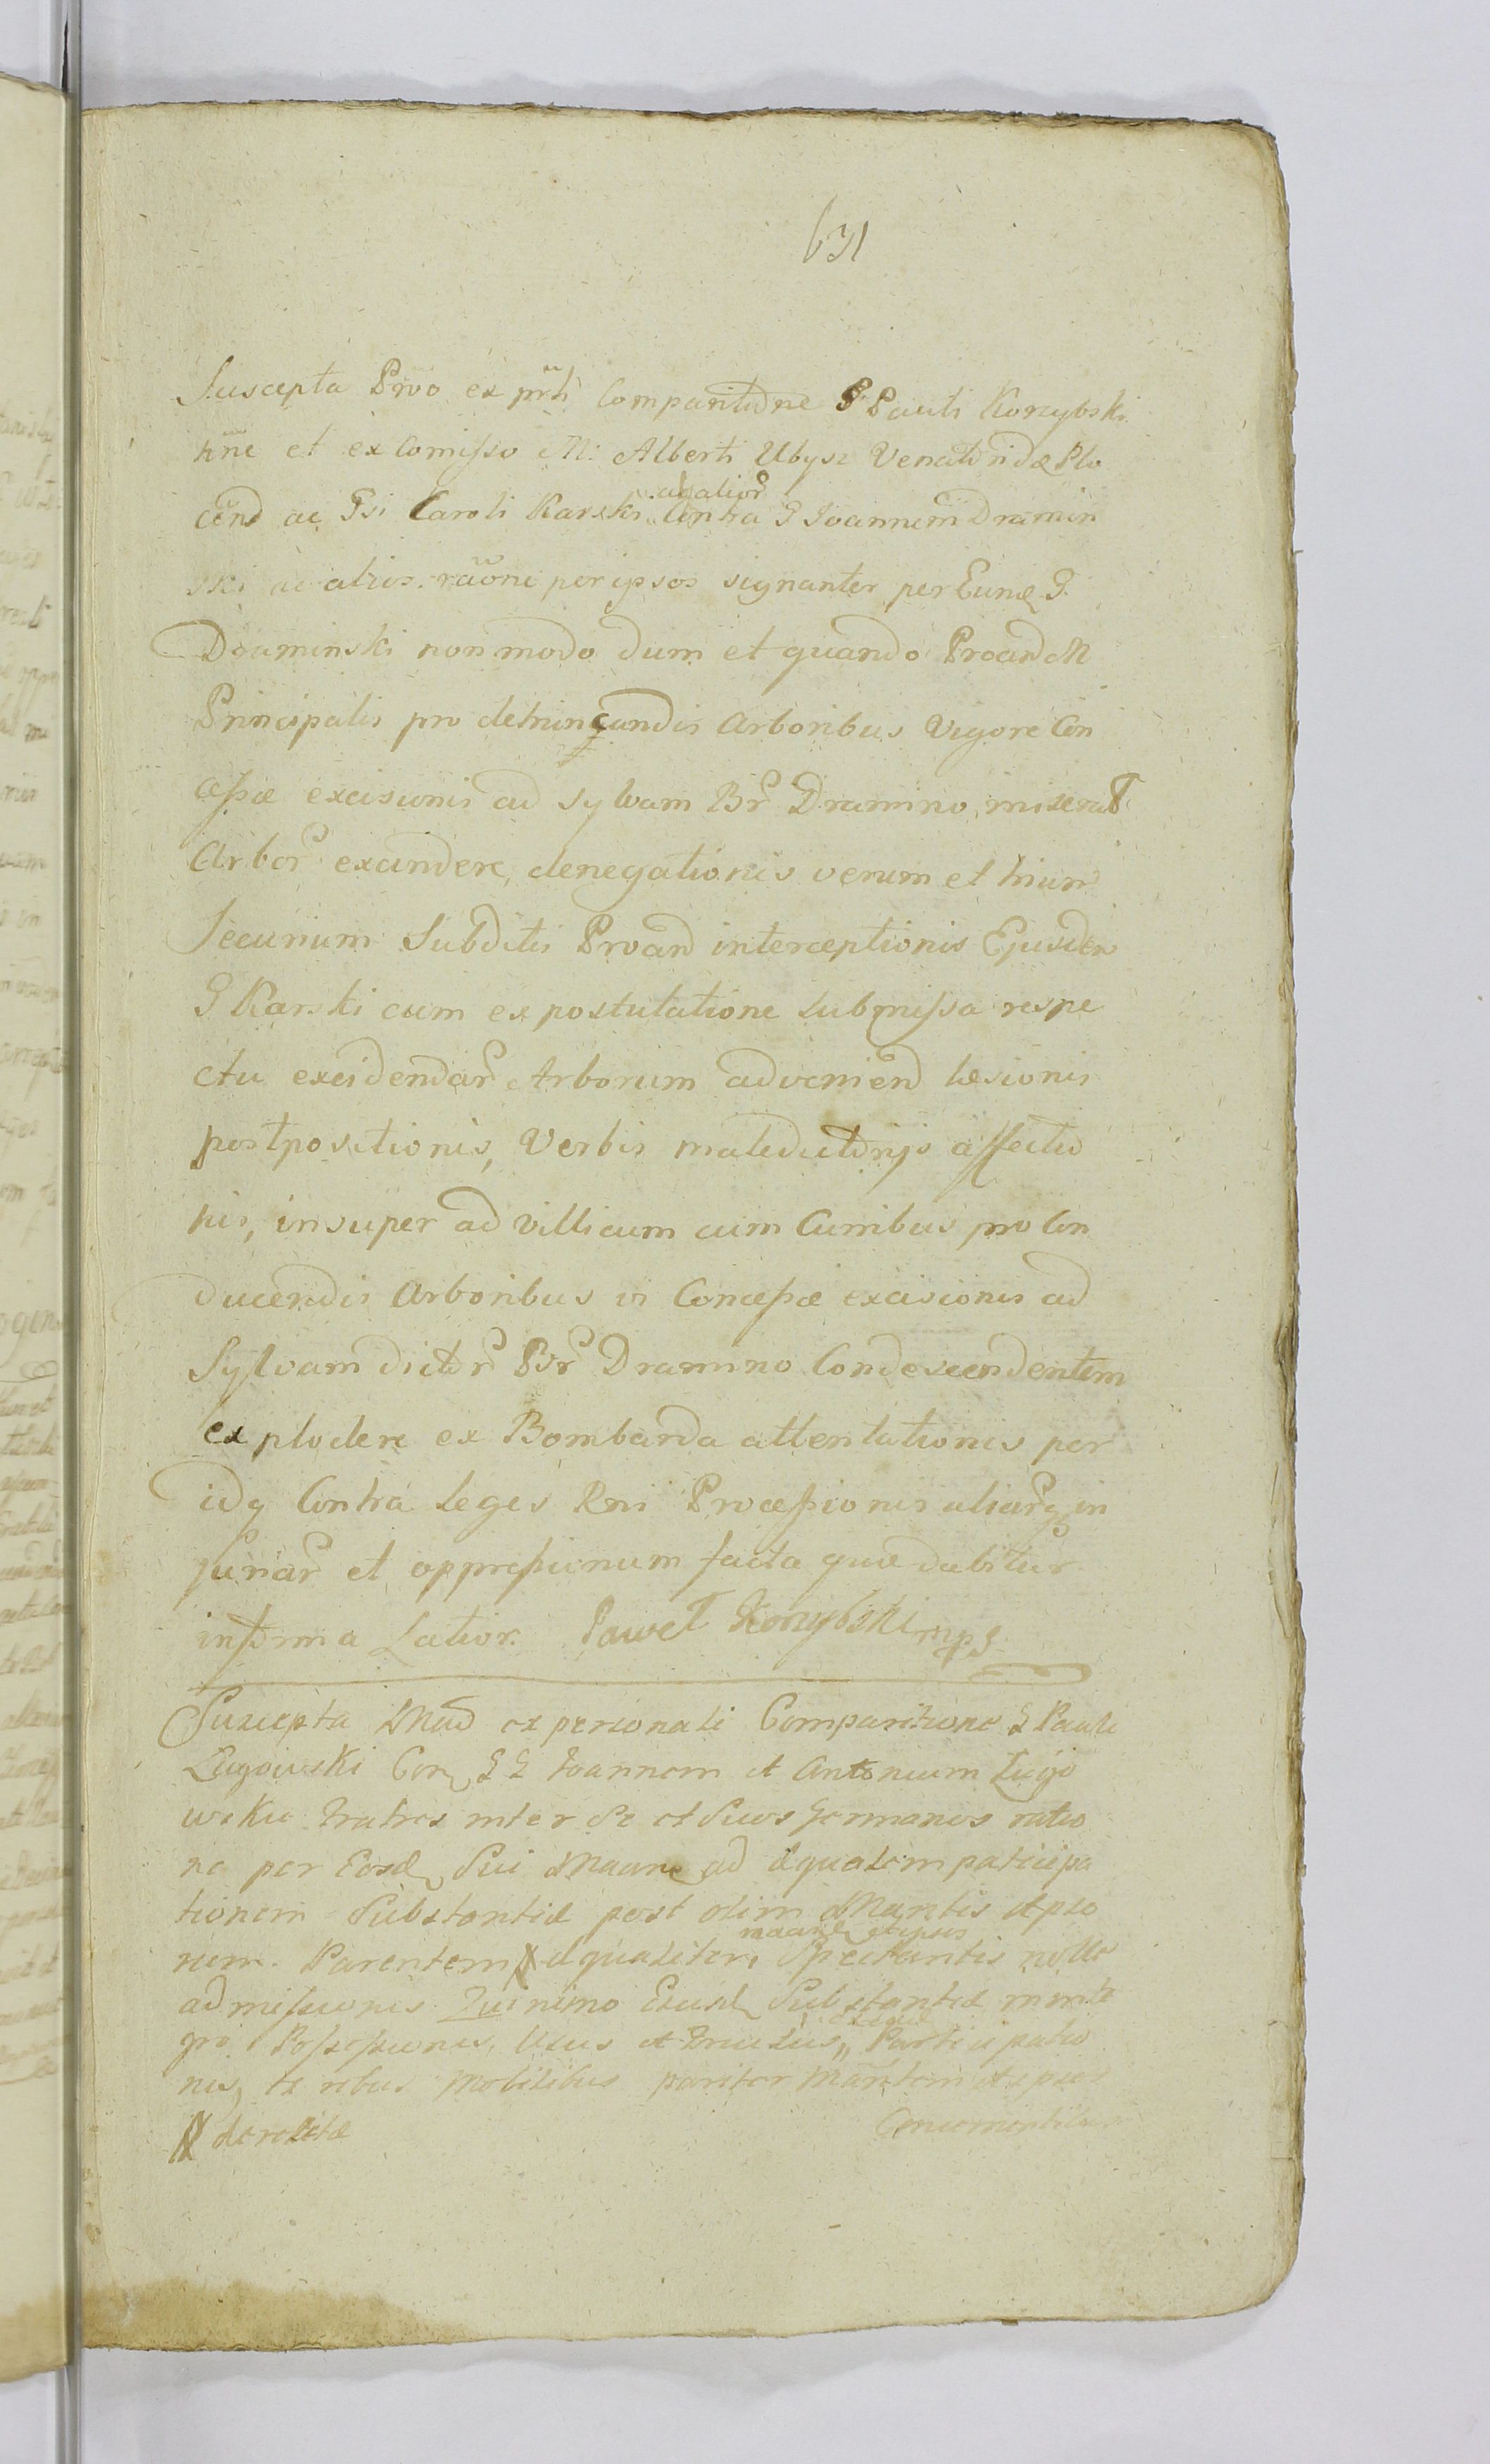 631
Suscepta Prõo ex prh̃i Comparitione G Pauli Korzybski
hñe et ex Comisso M: Alberti Ubysz Venatoridæ Plo
cens ac Gsi Caroli Karski ac alior Contra G Joannem Dramin
ski ac alios raõne per ipsos signanter per Eund G.
Draminski non modo dum et quando Proand M
Principalis pro detruncandis Arboribus Vigore Con
cessæ excisionis ad sylvam Br Dramino, miserat
Arbor excindere, denegationis verum et trium
Securium Subditis Proand interceptionis Ejusdem
G Karski cum expostulatione submissa respe
ctu excidendar Arborum adveniend læsionis
postpositionis, Verbis maledictorijs affectio
nis, insuper ad villicum cum Curribus pro Con
ducendis Arboribus vi Concessæ excisionis ad
Sylvam dictor Br Dramino Condescendentem
explodere ex Bombarda attentationis per
idq Contra leges Rni Processionis aliarq in
juriar et oppressionum facta quæ dabitur
in forma Latior. Paweł Korzybski mps
Suscepta Mad ex personali Comparitione G Pauli
Lugowski Con G G Joannem et Antonium Lugo
wskie Fratres inter Se et Suos Germanos ratio
ne per Eosd Sui Maane ad æqualem paticipa
tionem Substantiæ post olim Mantis et pso
rum. Parentem æqualiter, maane et ipsis Spectantis nolle
admissionis Quinimo Eiusd Substantiæ in inte
gro Possessionis, Usus et Fructus, Participatio
nis, ex rebus Mobilibus pariter Mantem et ipsos
derelictæ
Concernentibus